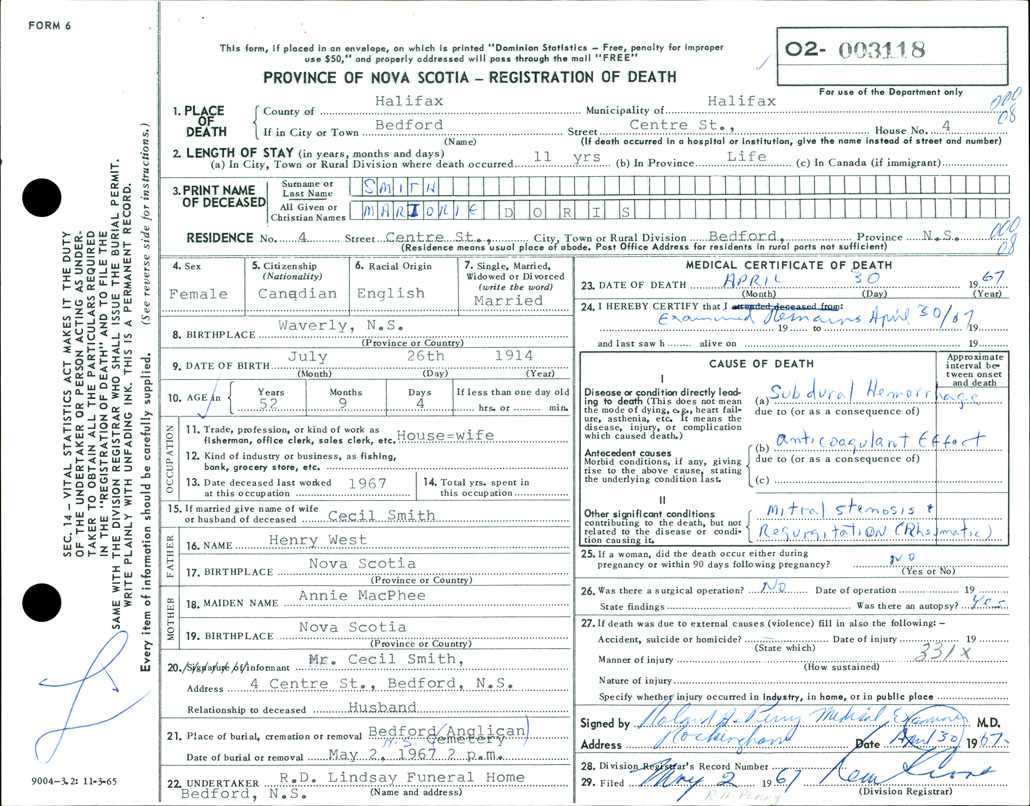 FORM 6
This form, if placed in an envelope, on which is printed "Dominion Statistics – Free, penalty for improper
use $50," and properly addressed will pass through the mail "FREE"
O2- 003118
For use of the Department only
PROVINCE OF NOVA SCOTIA – REGISTRATION OF DEATH
000
08
1. PLACE OF DEATH
County of Halifax Municipality of Halifax
If in City or Town Bedford Street Centre St., House No. 4
(Name) (If death occurred in a hospital or institution, give the name instead of street and number)
2. LENGTH OF STAY (in years, months and days)
(a) In City, Town or Rural Division where death occurred 11 yrs (b) In Province Life (c) In Canada (if immigrant)
3. PRINT NAME OF DECEASED
Surname or Last Name SMITH
All Given or Christian Names MARJORIE DORIS
000
08
RESIDENCE No. 4 Street Centre St., City, Town or Rural Division Bedford, Province N.S.
(Residence means usual place of abode. Post Office Address for residents in rural parts not sufficient)
4. Sex
Female
5. Citizenship
(Nationality)
Canadian
6. Racial Origin
English
7. Single, Married,
Widowed or Divorced
(write the word)
Married
8. BIRTHPLACE Waverly, N.S.
(Province or Country)
9. DATE OF BIRTH July 26th 1914
(Month) (Day) (Year)
10. AGE in Years 52 Months 9 Days 4 If less than one day old
hrs. or min.
OCCUPATION
11. Trade, profession, or kind of work as
fisherman, office clerk, sales clerk, etc. House=wife
12. Kind of industry or business, as fishing,
bank, grocery store, etc.
13. Date deceased last worked
at this occupation 1967
14. Total yrs. spent in
this occupation
15. If married give name of wife
or husband of deceased Cecil Smith
FATHER
16. NAME Henry West
17. BIRTHPLACE Nova Scotia
(Province or Country)
MOTHER
18. MAIDEN NAME Annie MacPhee
19. BIRTHPLACE Nova Scotia
(Province or Country)
20. Signature of informant Mr. Cecil Smith,
Address 4 Centre St., Bedford, N.S.
Relationship to deceased Husband
21. Place of burial, cremation or removal Bedford Anglican
N.S. Cemetery
Date of burial or removal May 2, 1967 2 p.m.
22. UNDERTAKER R.D. Lindsay Funeral Home
Bedford, N.S. (Name and address)
MEDICAL CERTIFICATE OF DEATH
23. DATE OF DEATH APRIL 30 1967
(Month) (Day) (Year)
24. I HEREBY CERTIFY that I attended deceased from:
Examined Remains April 30/67
19 to 19
and last saw h alive on 19
CAUSE OF DEATH
Approximate
interval be-
tween onset
and death
I
Disease or condition directly lead-
ing to death (This does not mean
the mode of dying, e.g., heart fail-
ure, asthenia, etc. It means the
disease, injury, or complication
which caused death.)
(a) Subdural Hemorrhage
due to (or as a consequence of)
Antecedent causes
Morbid conditions, if any, giving
rise to the above cause, stating
the underlying condition last.
(b) anticoagulant Effect
due to (or as a consequence of)
(c)
II
Other significant conditions
contributing to the death, but not
related to the disease or condi-
tion causing it.
Mitral Stenosis +
Regurgitation (Rheumatic)
25. If a woman, did the death occur either during
pregnancy or within 90 days following pregnancy? NO
(Yes or No)
26. Was there a surgical operation? No Date of operation 19
State findings Was there an autopsy? Yes
27. If death was due to external causes (violence) fill in also the following: –
Accident, suicide or homicide? Date of injury 19
(State which)
331X
Manner of injury
(How sustained)
Nature of injury
Specify whether injury occurred in industry, in home, or in public place
Signed by Roland A. Perry Medical Examiner M.D.
Address Rockingham Date April 30 1967
28. Division Registrar's Record Number
29. Filed May 2 1967
(Division Registrar)
R.A. PERRY
SEC. 14 – VITAL STATISTICS ACT MAKES IT THE DUTY
OF THE UNDERTAKER OR PERSON ACTING AS UNDER-
TAKER TO OBTAIN ALL THE PARTICULARS REQUIRED
IN THE "REGISTRATION OF DEATH" AND TO FILE THE
SAME WITH THE DIVISION REGISTRAR WHO SHALL ISSUE THE BURIAL PERMIT.
WRITE PLAINLY WITH UNFADING INK. THIS IS A PERMANENT RECORD.
Every item of information should be carefully supplied. (See reverse side for instructions.)
9004–3.2: 11-3-65